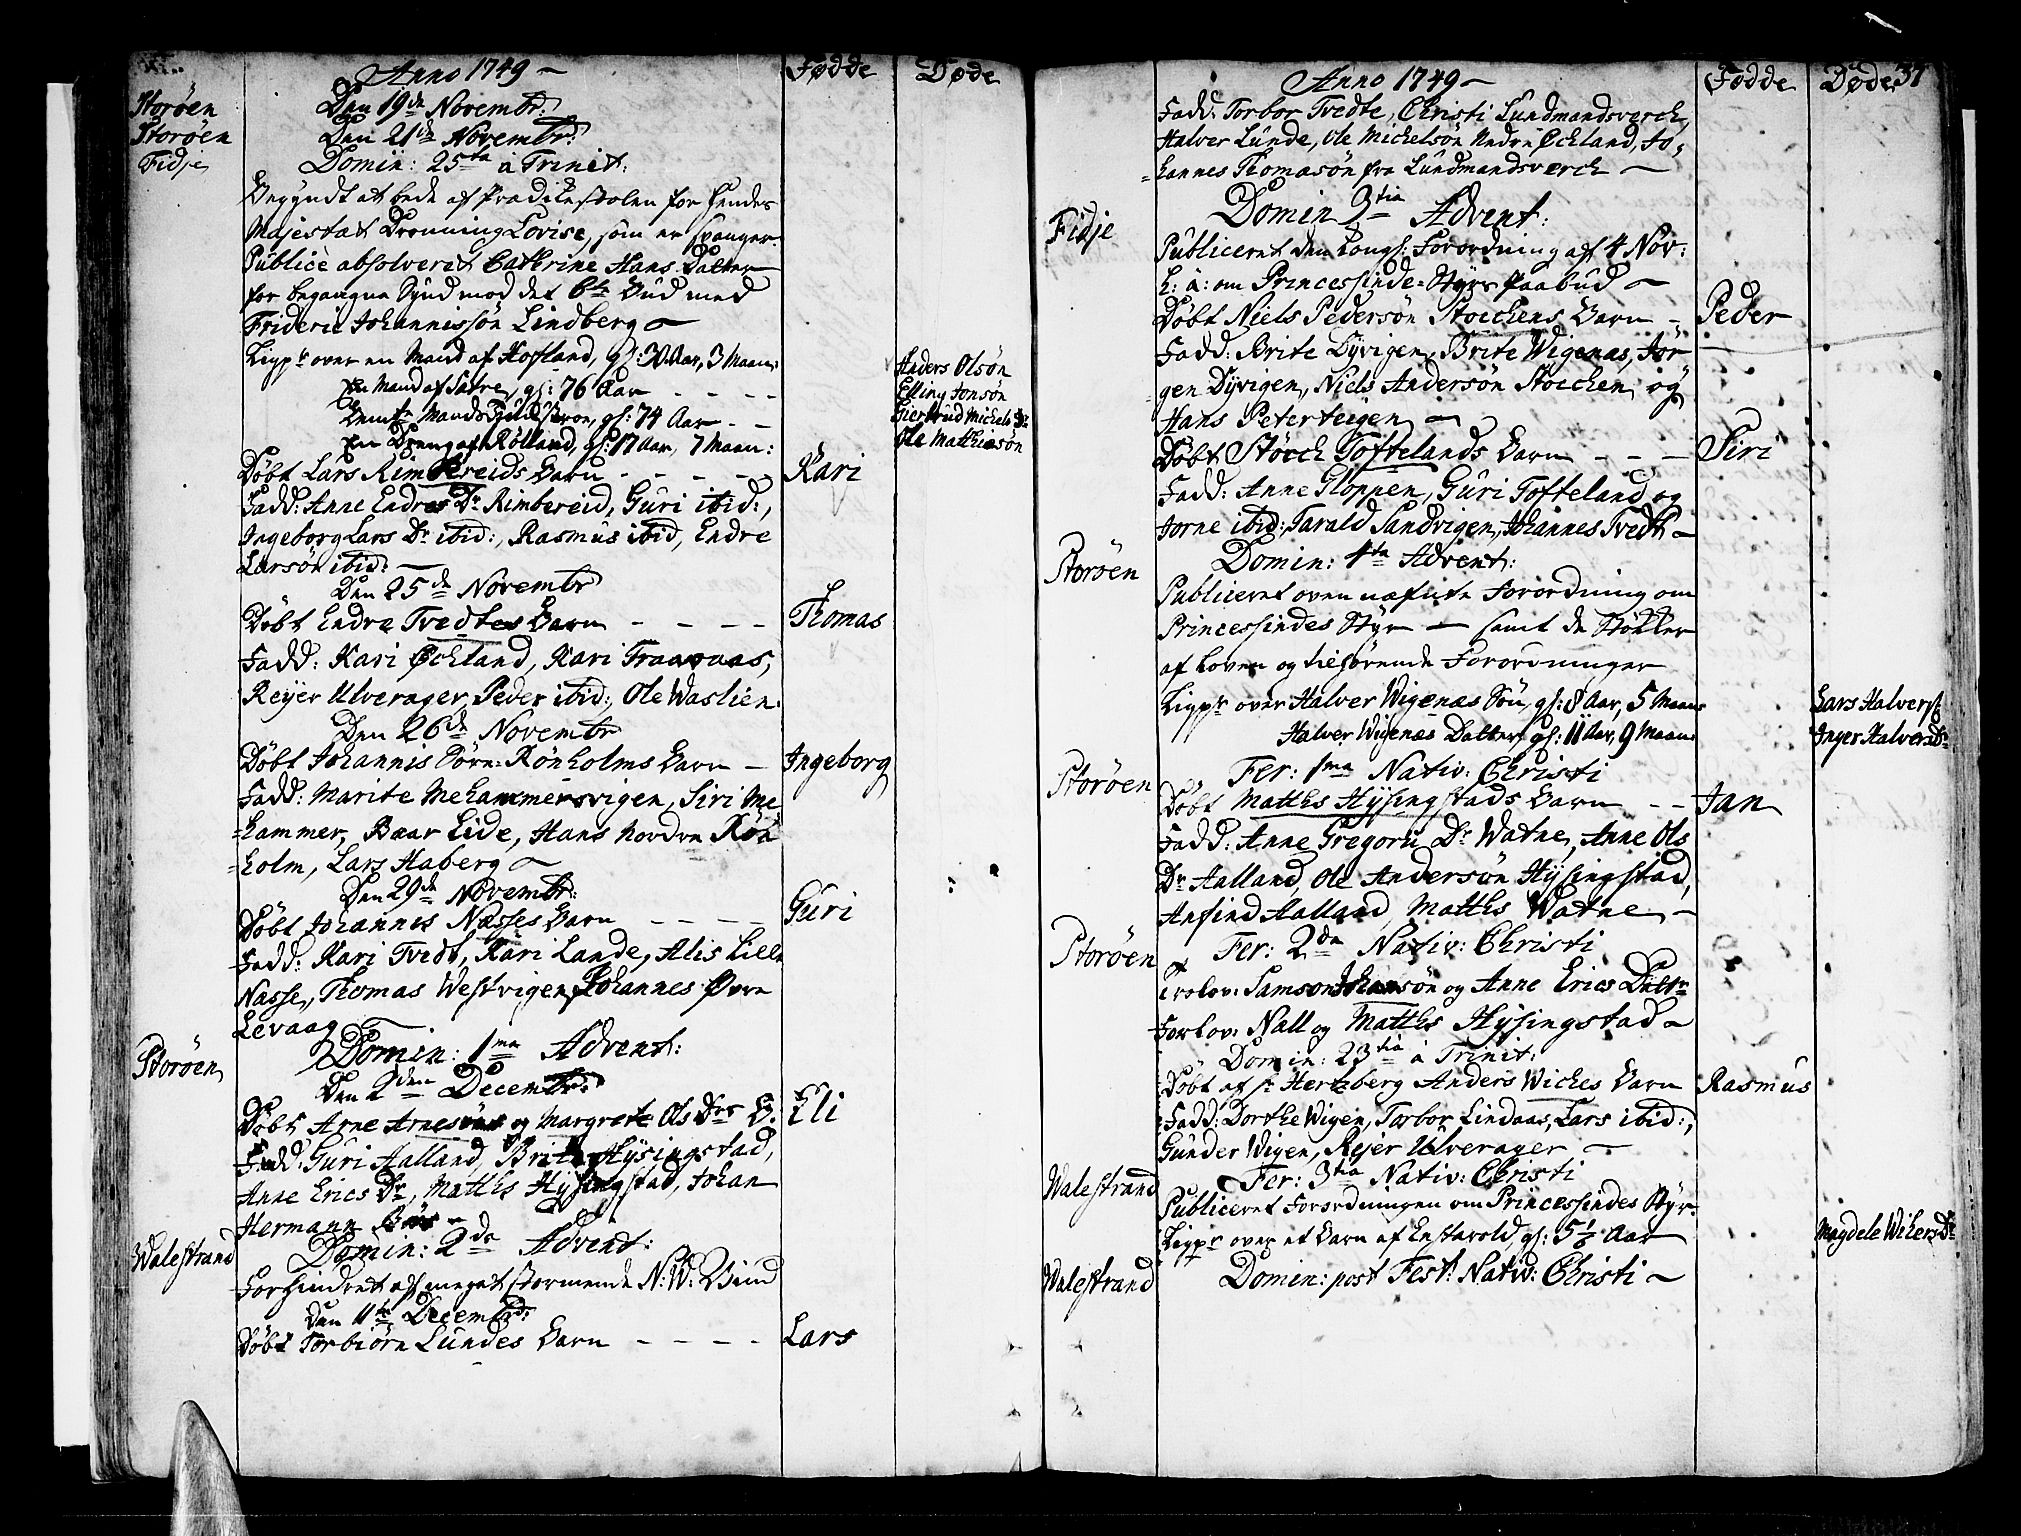 Anno 1749
Fødde
Døde
Storøen
Den 19de Novembr:
Storøen
Den 21de Novembr:
Fidje
Domin: 25ta a Trinit:
Begyndt at bede af Prædikestolen for Hendes
Majestæt Dronning Lovise, som er svanger.
Publicè absolveret Cathrine Hans Datter
for begangne Synd mod det 6te Bud med
Frideric Johannissøn Lindberg
Ligpr over en Mand af Kofland, gl: 30 Aar, 3 Maan:
Anders Olsøn
En Mand af Satre, gl: 76 Aar
Elling Jonsøn
gl: 74 Aar
Giertrud Michels Dr
En Dreng af Rølland, gl: 17 Aar, 7 Maan:
Ole Mathiesøn
Døbt Lars Rimbereids Barn
Kari
Fadd: Anne Endres Dr Rimbereid, Guri ibid:,
Ingeborg Lars Dr ibid:, Rasmus ibid, Endre
Larsøn ibid:
Den 25de Novembr
Døbt Endre Tvedtes Barn
Thomas
Fadd: Kari Øckland, Kari Traasaas,
Reyer Ulverager, Peder ibid:, Ole Waslien.
Den 26de Novembr
Døbt Johannis Sørn: Rønholms Barn
Ingeborg
Fadd: Marite Mehammersvigen, Siri Me
=hammer, Baar Eide, Hans Nordre Røn
=holm, Lars Haberg
Den 29de Novembr:
Døbt Johannes Næsses Barn
Guri
Fadd: Kari Tvedt, Kari Lande, Alis Lille
Nasse, Thomas Westvigen, Johannes Øvre
Levaag
Storøen
Domin: 1ma Advent:
Den 2den Decembr:
Døbt Arne Arnesøns og Margrete Ols Drs
Eli
Fadd: Guri Aalland, Brite Hysingstad,
Anne Erics Dr, Matths Hysingstad, Johan
Hermann
Walestrand
Domin: 2da Advent:
Forhindret af meget stormende N:W: Vind
Den 11te Decembr:
Døbt Torbiørn Lundes Barn
Lars
Anno 1749
Fødde
Døde
37
Fadd: Torbor Tvedte, Christi Lundmandsverch,
Halver Lunde, Ole Michelsøn Nedre Øckland, Jo,
=hannes Thomasøn fra Lundmandsverch
Fidje
Domin 3tia Advent:
Publiceret den Kongl: Forordning af 4 Nov:
h: a: om Princessinde-Styrs Paabud
Døbt Niels Pedersøn Stoechens Barn
Peder
Fadd: Brite Dyvigen, Brite Wigenæs, Jør
gen Dyvigen, Niels Andersøn Stoechen og
Hans Peterteigen
Døbt Størch Toftelands Barn
Siri
Fadd: Anne Gloppen, Guri Tofteland og
Jorne ibid: Tarald Sandvigen, Johannes Tvedt
Storøen
Domin: 4ta Advent:
Publiceret oven næfnte Forordning om
Princessindes Styr samt de Støkker
af Loven og tilhørende Forordninger
Ligpr over Halver Wigenæs Søn, gl: 8 Aar, 5 Maan
Lars Halvers:
Halver Wigenæs Datter, gl: 11 Aar, 9 Maan:
Inger Halvers Dr
Storøen
Fer: 1ma Nativ: Christi
Døbt Matths Hysingstads Barn
Jan
Fadd: Anne Gregorii Dr Watne, Anne Ols
Dr Aalland, Ole Andersøn Hysingstad,
Anfind Aalland, Matths Watne
Storøen
Fer: 2da Nativ: Christi
Trolov: Samson Johansøn og Anne Erics Datr
Forlov: Nall og Matths Hysingstad
Domin: 23tia a Trinit:
Døbt af Hr Hertzberg Anders Wiches Barn
Rasmus
Fadd: Dorthe Wigen, Torbor Lindaas, Lars ibid:,
Gunder Wigen, Rejer Ulverager
Walestrand
Fer: 3tia Nativ: Christi
Publiceret Forordningen om Princessindes Styr
Ligpr over et Barn af Enstavold, gl: 5 1/6 Aar
Magdele Wikers Dr
Walestrand
Domin: post Fest: Nativ: Christi